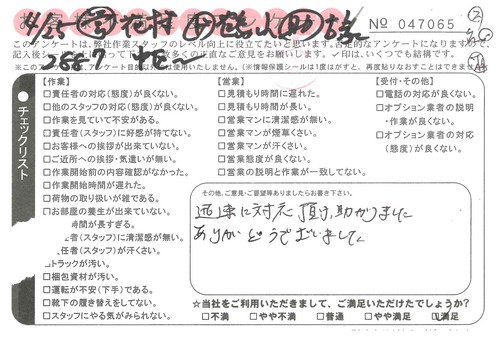 No 047065
このアンケートは、弊社作業スタッフのレベル向上に役立てたいと思います。否定的なアンケートになりますが
【作業】
□責任者の対応(態度)が良くない。
□他のスタッフの対応(態度)が良くない。
□作業を見ていて不安がある。
□責任者(スタッフ)に好感が持てない。
□お客様への挨拶が出来ていない。
□ご近所への挨拶・気遣いが無い。
□作業開始前の内容確認がなかった。
□作業開始時間が遅れた。
□荷物の取り扱いが雑である。
□お部屋の養生が出来ていない。
時間が長すぎる。
任者(スタッフ)に清潔感が無い。
任者(スタッフ)が汗くさい。
トラックが汚い。
□梱包資材が汚い。
□運転が不安(下手)である。
□靴下の履き替えをしてない。
□スタッフにやる気がみられない。
【営業】
□見積もり時間に遅れた。
□見積もり時間が長い。
□営業マンに清潔感が無い。
□営業マンが煙草くさい。
□営業マンが汗くさい。
□営業態度が良くない。
□営業の説明と作業が一致してない。
【受付・その他】
□電話の対応が良くない。
□オプション業者の説明
・作業が良くない。
□オプション業者の対応
(態度)が良くない。
チェックリスト
その他、ご意見・ご要望等ありましたらお書き下さい。
迅速に対応頂け、助かりました
ありがとうございました。
☆当社をご利用いただきまして、ご満足いただけたでしょうか?
□不満 □やや不満 □普通 □やや満足 ☑満足